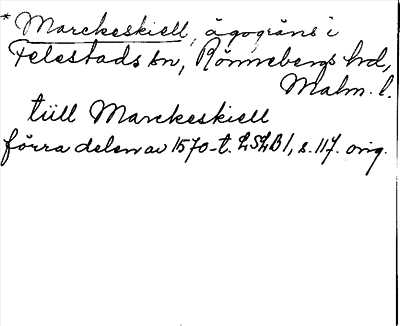 * Marckeskiell, ägogräns i
Felestads sn, Rönnebergs hd,
Malm. l.
tiill Marckeskiell
förra delen av 1570-t. LSLB1, s. 117. orig.